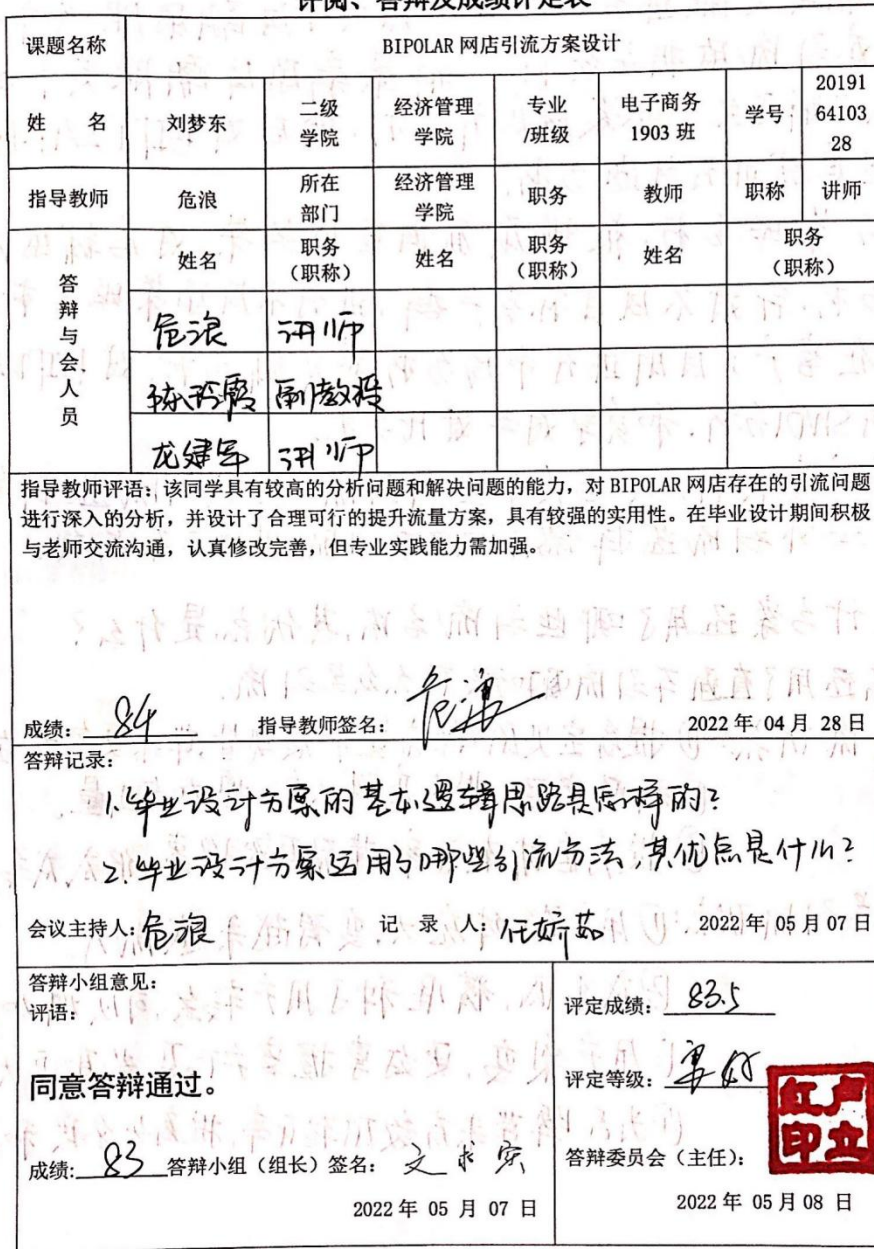 评阅、答辩及成绩评定表
课题名称 BIPOLAR 网店引流方案设计
姓 名 刘梦东 二级学院 经济管理学院 专业/班级 电子商务1903 班 学号 201916410328
指导教师 危浪 所在部门 经济管理学院 职务 教师 职称 讲师
答辩与会人员 姓名 职务（职称） 姓名 职务（职称） 姓名 职务（职称）
危浪 讲师
副教授
龙建军 讲师
指导教师评语：该同学具有较高的分析问题和解决问题的能力，对 BIPOLAR 网店存在的引流问题
进行深入的分析，并设计了合理可行的提升流量方案，具有较强的实用性。在毕业设计期间积极
与老师交流沟通，认真修改完善，但专业实践能力需加强。
成绩: 84 指导教师签名: 危浪 2022 年 04 月 28 日
答辩记录：
1.毕业设计方案的基本逻辑思路是怎样的?
2.毕业设计方案运用了哪些引流方法,其优点是什么?
会议主持人: 危浪 记 录 人: 任娇茹 2022 年 05 月 07 日
答辩小组意见：
评语：
同意答辩通过。
成绩: 83 答辩小组（组长）签名: 文
2022 年 05 月 07 日
评定成绩: 83.5
评定等级: 良好
答辩委员会（主任）: 卢立红印
2022 年 05 月 08 日